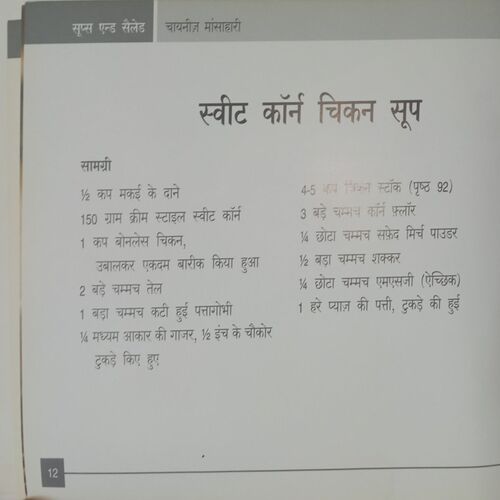 सूप्स एन्ड सैलेड
चायनीज़ मांसाहारी
स्वीट कॉर्न चिकन सूप
सामग्री
½ कप मकई के दाने
150 ग्राम क्रीम स्टाइल स्वीट कॉर्न
1 कप बोनलेस चिकन,
उबालकर एकदम बारीक किया हुआ
2 बड़े चम्मच तेल
1 बड़ा चम्मच कटी हुई पत्तागोभी
¼ मध्यम आकार की गाजर, ½ इंच के चौकोर
टुकड़े किए हुए
4-5 कप चिकन स्टॉक (पृष्ठ 92)
3 बड़े चम्मच कॉर्न फ़्लॉर
¼ छोटा चम्मच सफ़ेद मिर्च पाउडर
½ बड़ा चम्मच शक्कर
¼ छोटा चम्मच एमएसजी (ऐच्छिक)
1 हरे प्याज़ की पत्ती, टुकड़े की हुई
12